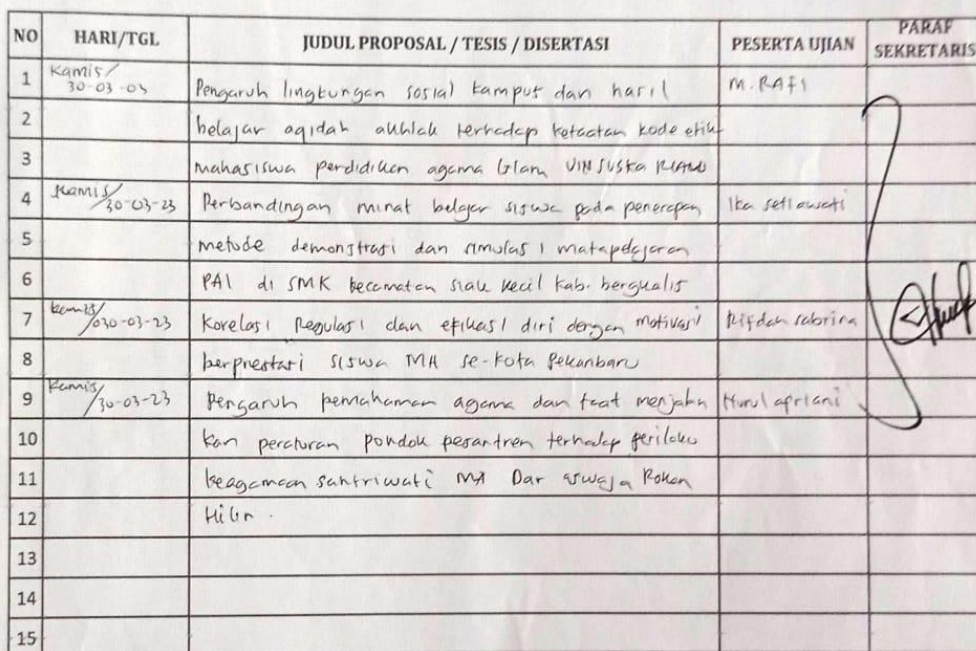 NO HARI/TGL JUDUL PROPOSAL / TESIS / DISERTASI PESERTA UJIAN PARAF SEKRETARIS
1 Kamis/ 30-03-03 Pengaruh lingkungan sosial kampus dan hasil M. RAFI
2 belajar aqidah akhlak terhadap ketaatan kode etik
3 mahasiswa pendidikan agama Islam UIN SUSKA RIAU
4 Kamis/ 30-03-23 Perbandingan minat belajar siswa pada penerapan Ika setiawati
5 metode demonstrasi dan simulasi matapelajaran
6 PAI di SMK kecamatan siak kecil kab. bengkalis
7 kamis/ 030-03-23 Korelasi Regulasi dan efikasi diri dengan motivasi Rifdah sabrina
8 berprestasi siswa MA se-Kota Pekanbaru
9 Kamis/ 30-03-23 Pengaruh pemahaman agama dan taat menjala Nurul apriani
10 kan peraturan pondok pesantren terhadap perilaku
11 keagamaan santriwati MA Dar aswaja Rokan
12 Hilir.
13
14
15